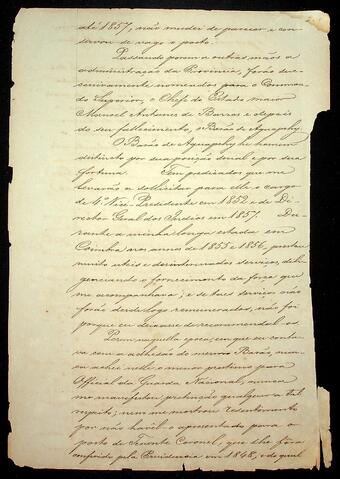 até 1857, não mudei de parecer e con-
servou-se vago o posto.
Passando porem a outras mãos a
administração da Provincia, forão suc-
cessivamente nomeados para o Comman-
do Superior, o Chefe do Estado maior
Manoel Antunes de Barros e depois
do seu fallecimento, o Barão de Aguapehy.
O Barão de Aguapehy he homem
distincto por sua posição social e por sua
fortuna. Tem predicados que me
levarão a sollicitar para elle o cargo
de 4º Vice-Presidente em 1852 e de Di-
rector Geral dos Indios em 1857. Du-
rante a minha longa estada em
Coimbra nos annos de 1855 e 1856, prestou
muito uteis e desinteressados serviços, dili-
genciando o fornecimento da força que
me acompanhava; e se taes serviços não
forão desde logo remunerados, não foi
porque eu deixasse de recommendal-os.
Porem naquella epoca, em que eu conta-
va com a adhesão do mesmo Barão, nun-
ca achei nelle o menor prestimo para
Official da Guarda Nacional, nunca
me manifestou pretenção qualquer a tal
respeito; nem me mostrou resentimento
por não havel-o apresentado para o
posto de Tenente Coronel, que lhe fôra
conferido pela Presidencia em 1848, e do qual